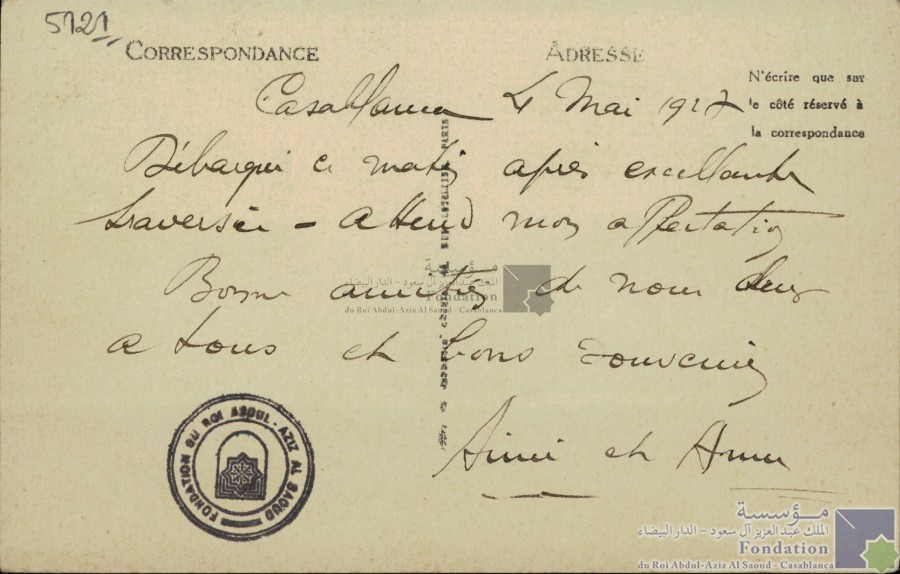 5121
CORRESPONDANCE
ADRESSE
N'écrire que sur
le côté réservé à
la correspondance
Casablanca 4 Mai 1927
Débarqué ce matin après excellente
traversée - attend mon affectation
Bonne amitiés de nous deux
a tous et bons souvenirs
Aimé et
PARIS
مؤسسة
الملك عبدالعزيز آل سعود - الدار البيضاء
Fondation
du Roi Abdul-Aziz Al Saoud - Casablanca
FONDATION DU ROI ABDUL-AZIZ AL SAOUD
مؤسسة
الملك عبدالعزيز آل سعود - الدار البيضاء
Fondation
du Roi Abdul-Aziz Al Saoud - Casablanca